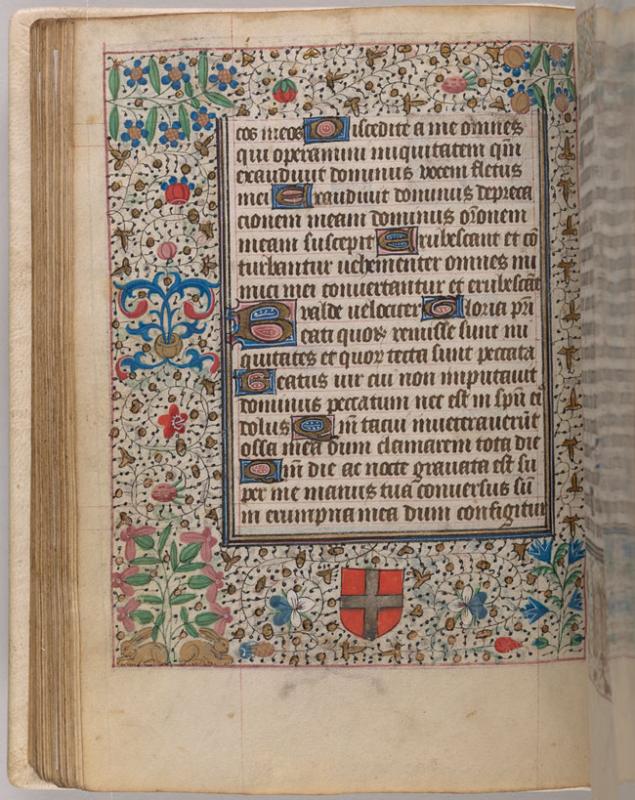 eos meos Discedite a me omnes
qui operamini iniquitatem qm̄
exaudiuit dominus vocem fletus
mei Exaudiuit dominus depreca
cionem meam dominus or̄onem
meam suscepit Erubescant et cō
turbantur uehementer omnes ini
mici mei conuertantur et erubescāt
valde uelociter Gloria pr̄i
Beati quorꝝ remisse sunt ini
quitates et quorꝝ tecta sunt peccata
Beatus uir cui non imputauit
dominus peccatum nec est in sp̄u ei
dolus Qm̄ tacui inueterauerūt
ossa mea dum clamarem tota die
Qm̄ die ac nocte grauata est su
per me manus tua conuersus sū
in erumpna mea dum configitur